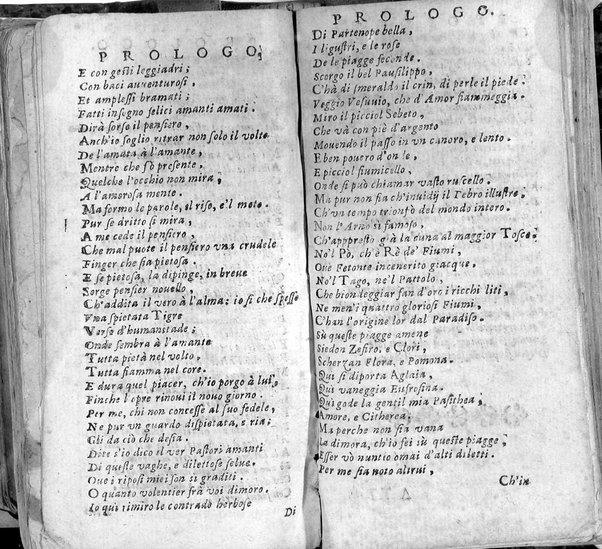 PROLOGO,
E con gesti leggiadri;
Con baci auuenturosi,
Et amplessi bramati;
Fatti insegno felici amanti amati.
Dirà forse il pensiero,
Anch'io soglio ritrar non solo il volto
De l'amata à l'amante,
Mentre che sò presente,
Quelche l'occhio non mira,
A l'amorosa mente.
Ma formo le parole, el riso, e'l moto.
Pur se dritto si mira,
A me cede il pensiero,
Che mal puote il pensiero vna crudele
Finger che sia pietosa.
E se pietosa, la dipinge, in breue
Sorge pensier nouello,
Ch'addita il vero à l'alma: io sì che spesso
Vna spietata Tigre
Verso d'humanitade;
Onde sembra à l'amante
Tutta pietà nel volto,
Tutta fiamma nel core.
E dura quel piacer, ch'io porgo à lui,
Finche l'opre rinoui il nouo giorno.
Per me, chi non concesse al suo fedele,
Ne pur vn guardo dispietata, e ria;
Gli dà ciò che desia.
Dite s'io dico il ver Pastori amanti
Di queste vaghe, e dilettose selue.
Oue i riposi miei son sì graditi.
O quanto volentier frà voi dimoro.
Io quì rimiro le contrade herbose
Di
PROLOGO.
Di Partenope bella,
I ligustri, e le rose
De le piagge feconde.
Scorgo il bel Pausilippo,
C'hà di smeraldo il crin, di perle il piede.
Veggio Vesuuio, che d'Amor fiammeggia.
Miro il picciol Sebeto,
Che và con piè d'argento
Mouendo il passo in vn canoro, e lento.
E ben pouero d'onde,
E picciol fiumicello,
Onde si può chiamar vasto ruscello.
Ma pur non fia ch'inuidij il Tebro illustre,
Ch'vn tempo trionfò del mondo intero.
Non l'Arno sì famoso,
Ch'appresto già la cuna al maggior Tosco.
No'l Pò, ch'è Rè de' Fiumi,
Oue Fetonte incenerito giacque.
No'l Tago, ne'l Pattolo,
Che bionleggiar fan d'oro i ricchi liti,
Ne men'i quattro gloriosi Fiumi,
C'han l'origine lor dal Paradiso.
Sù queste piagge amene
Siedon Zefiro, e Clori,
Scherzan Flora, e Pomona.
Quì si diporta Aglaia,
Quì vaneggia Eufrosina.
Quì gode la gentil mia Pasithea,
Amore, e Citherea;
Ma perche non sia vana
La dimora, ch'io fei sù queste piagge;
Esser vò nuntio omai d'alti diletti.
Per me sia noto altrui,
Ch'in